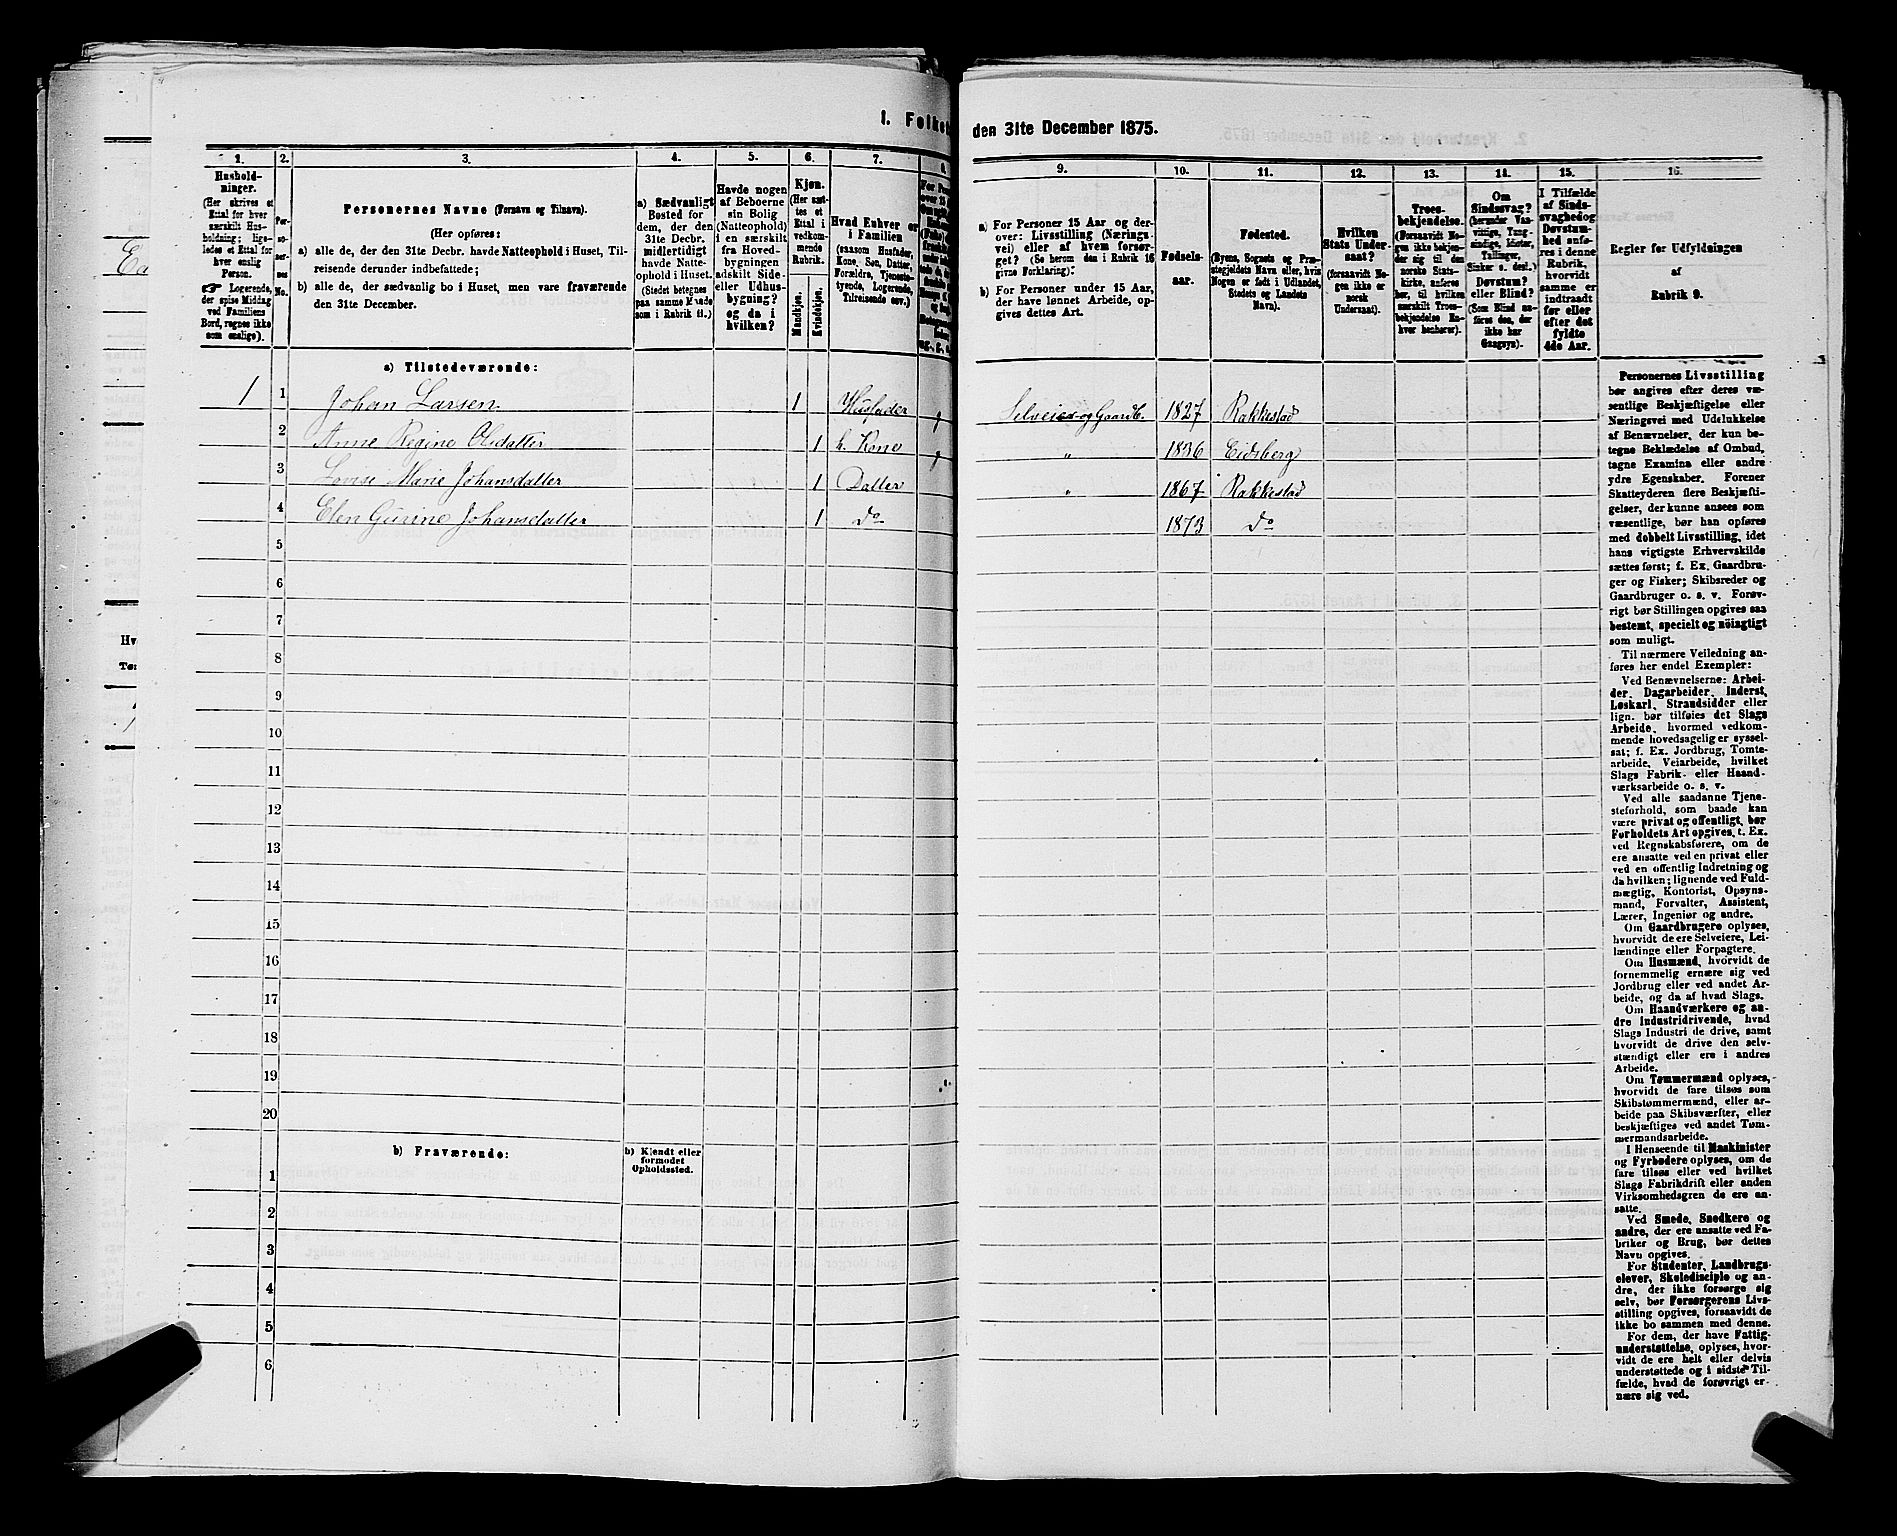 I. Folket
den 31te December 1875.
1. 2. 3. 4. 5. 6. 7. 8.
Hushold-
ninger.
(Her skrives et
Ettal for hver
særskilt Hus-
holdning; lige-
ledes et Ettal for
hver enslig
Person.
☛ Logerende,
der spise Middag
ved Familiens
Bord, regnes ikke
som enslige).
Per-
so-
ner-
nes
No.
Personernes Navne (Fornavn og Tilnavn).
(Her opføres:
a) alle de, der den 31te Decbr. havde Natteophold i Huset, Til-
reisende derunder indbefattede;
b) alle de, der sædvanlig bo i Huset, men vare fraværende
den 31te December.
a) Sædvanligt
Bosted for
dem, der den
31te Decbr.
midlertidigt
havde Natte-
ophold i Huset.
(Stedet betegnes
paa samme Maade
som i Rubrik 11.)
Havde nogen
af Beboerne
sin Bolig
(Natteophold)
i en særskilt
fra Hoved-
bygningen
adskilt Side-
eller Udhus-
bygning?
og da i
hvilken?
Kjøn.
(Her sæt-
tes et
Ettal i
vedkom-
mende
Rubrik.
Mandkjøn.
Kvindekjøn.
Hvad Enhver er
i Familien
(saasom Husfader,
Kone, Søn, Datter,
Forældre, Tjeneste-
tyende, Logerende,
Tilreisende osv.)
a) Tilstedeværende:
1 1 Johan Larsen 1 Husfader g
2 Anne Regine Olsdatter 1 h. Kone g
3 Lovise Marie Johansdatter 1 Datter
4 Elen Gurine Johansdatter 1 do
5
6
7
8
9
10
11
12
13
14
15
16
17
18
19
20
b) Fraværende:
b) Kjendt eller
formodet
Opholdssted.
1
2
3
4
5
6
9. 10. 11. 12. 13. 14. 15. 16.
a) For Personer 15 Aar og der-
over: Livsstilling (Nærings-
vei) eller af hvem forsør-
get? (Se herom den i Rubrik 16
givne Forklaring).
b) For Personer under 15 Aar,
der have lønnet Arbeide, op-
gives dettes Art.
Fødsels-
aar.
Fødested.
(Byens, Sognets og Præ-
stegjeldets Navn eller, hvis
Nogen er født i Udlandet,
Stedets og Landets
Navn).
Hvilken
Stats Under-
saat?
(forsaavidt No-
gen ikke er
norsk
Undersaat).
Troes-
bekjendelse.
(Forsaavidt No-
gen ikke bekjen-
der sig til den
norske Stats-
kirke, anføres
her, til hvilken
særskilt Troes-
bekjendelse En-
hver henhører).
Om
Sindssvag?
(herunder Van-
vittige, Tung-
sindige, Idioter,
Tullinger,
Sinker o. desl.)
Døvstum?
eller Blind?
(Som Blind an-
føres den, der
ikke har
Gangsyn).
I Tilfælde
af Sinds-
svaghed og
Døvstum-
hed anfø-
res i denne
Rubrik,
hvorvidt
samme er
indtraadt
før eller
efter det
fyldte
4de Aar.
Regler for Udfyldningen
af
Rubrik 9.
Selveier og Gaardb. 1827 Rakkestad
" 1836 Eidsberg
" 1867 Rakkestad
1873 do
Personernes Livsstilling
bør angives efter deres væ-
sentlige Beskjæftigelse eller
Næringsvei med Udelukkelse
af Benævnelser, der kun be-
tegne Beklædelse af Ombud,
tagne Examina eller andre
ydre Egenskaber. Forener
Skatteyderen flere Beskjæfti-
gelser, der kunne ansees som
væsentlige, bør han opføres
med dobbelt Livsstilling, idet
hans vigtigste Erhvervskilde
sættes først; f. Ex. Gaardbru-
ger og Fisker; Skibsreder og
Gaardbruger o. s. v. Forøv-
rigt bør Stillingen opgives saa
bestemt, specielt og nøiagtigt
som muligt.
Til nærmere Veiledning an-
føres her endel Exempler:
Ved Benævnelserne: Arbei-
der, Dagarbeider, Inderst,
Løskarl, Strandsidder eller
lign. bør tilføies det Slags
Arbeide, hvormed vedkom-
mende hovedsagelig er syssel-
sat; f. Ex. Jordbrug, Tomte-
arbeide, Veiarbeide, hvilket
Slags Fabrik- eller Haand-
værksarbeide o. s. v.
Ved alle saadanne Tjene-
steforhold, som baade kan
være privat og offentligt, bør
Forholdets Art opgives, t. Ex.
ved Regnskabsførere, om de
ere ansatte ved en privat eller
ved en offentlig Indretning og
da hvilken; lignende ved Fuld-
mægtig, Kontorist, Opsyns-
mand, Forvalter, Assistent,
Lærer, Ingeniør og andre.
Om Gaardbrugere oplyses,
hvorvidt de ere Selveiere, Lei-
lændinge eller Forpagtere.
Om Husmænd, hvorvidt de
fornemmelig ernære sig ved
Jordbrug eller ved andet Ar-
beide, og da af hvad Slags.
Om Haandværkere og an-
dre Industridrivende, hvad
Slags Industri de drive, samt
hvorvidt de drive den selv-
stændigt eller ere i andres
Arbeide.
Om Tømmermænd oplyses,
hvorvidt de fare tilsøs som
Skibstømmermænd, eller ar-
beide paa Skibsværfter, eller
beskjæftiges ved andet Tøm-
mermandsarbeide.
I Henseende til Maskinister
og Fyrbødere oplyses, om de
fare tilsøs eller ved hvilket
Slags Fabrikdrift eller anden
Virksomhedsgren de ere an-
satte.
Ved Smede, Snedkere og
andre, der ere ansatte ved Fa-
briker og Brug, bør dettes
Navn opgives.
For Studenter, Landbrugs-
elever, Skoledisciple og an-
dre, der ikke forsørge sig
selv, bør Forsørgerens Livs-
stilling opgives, forsaavidt de
ikke bo sammen med denne.
For dem, der have Fattig-
understøttelse, oplyses, hvor-
vidt de ere helt eller delvis
understøttede og i sidste Til-
fælde, hvad de forøvrigt er-
nære sig ved.